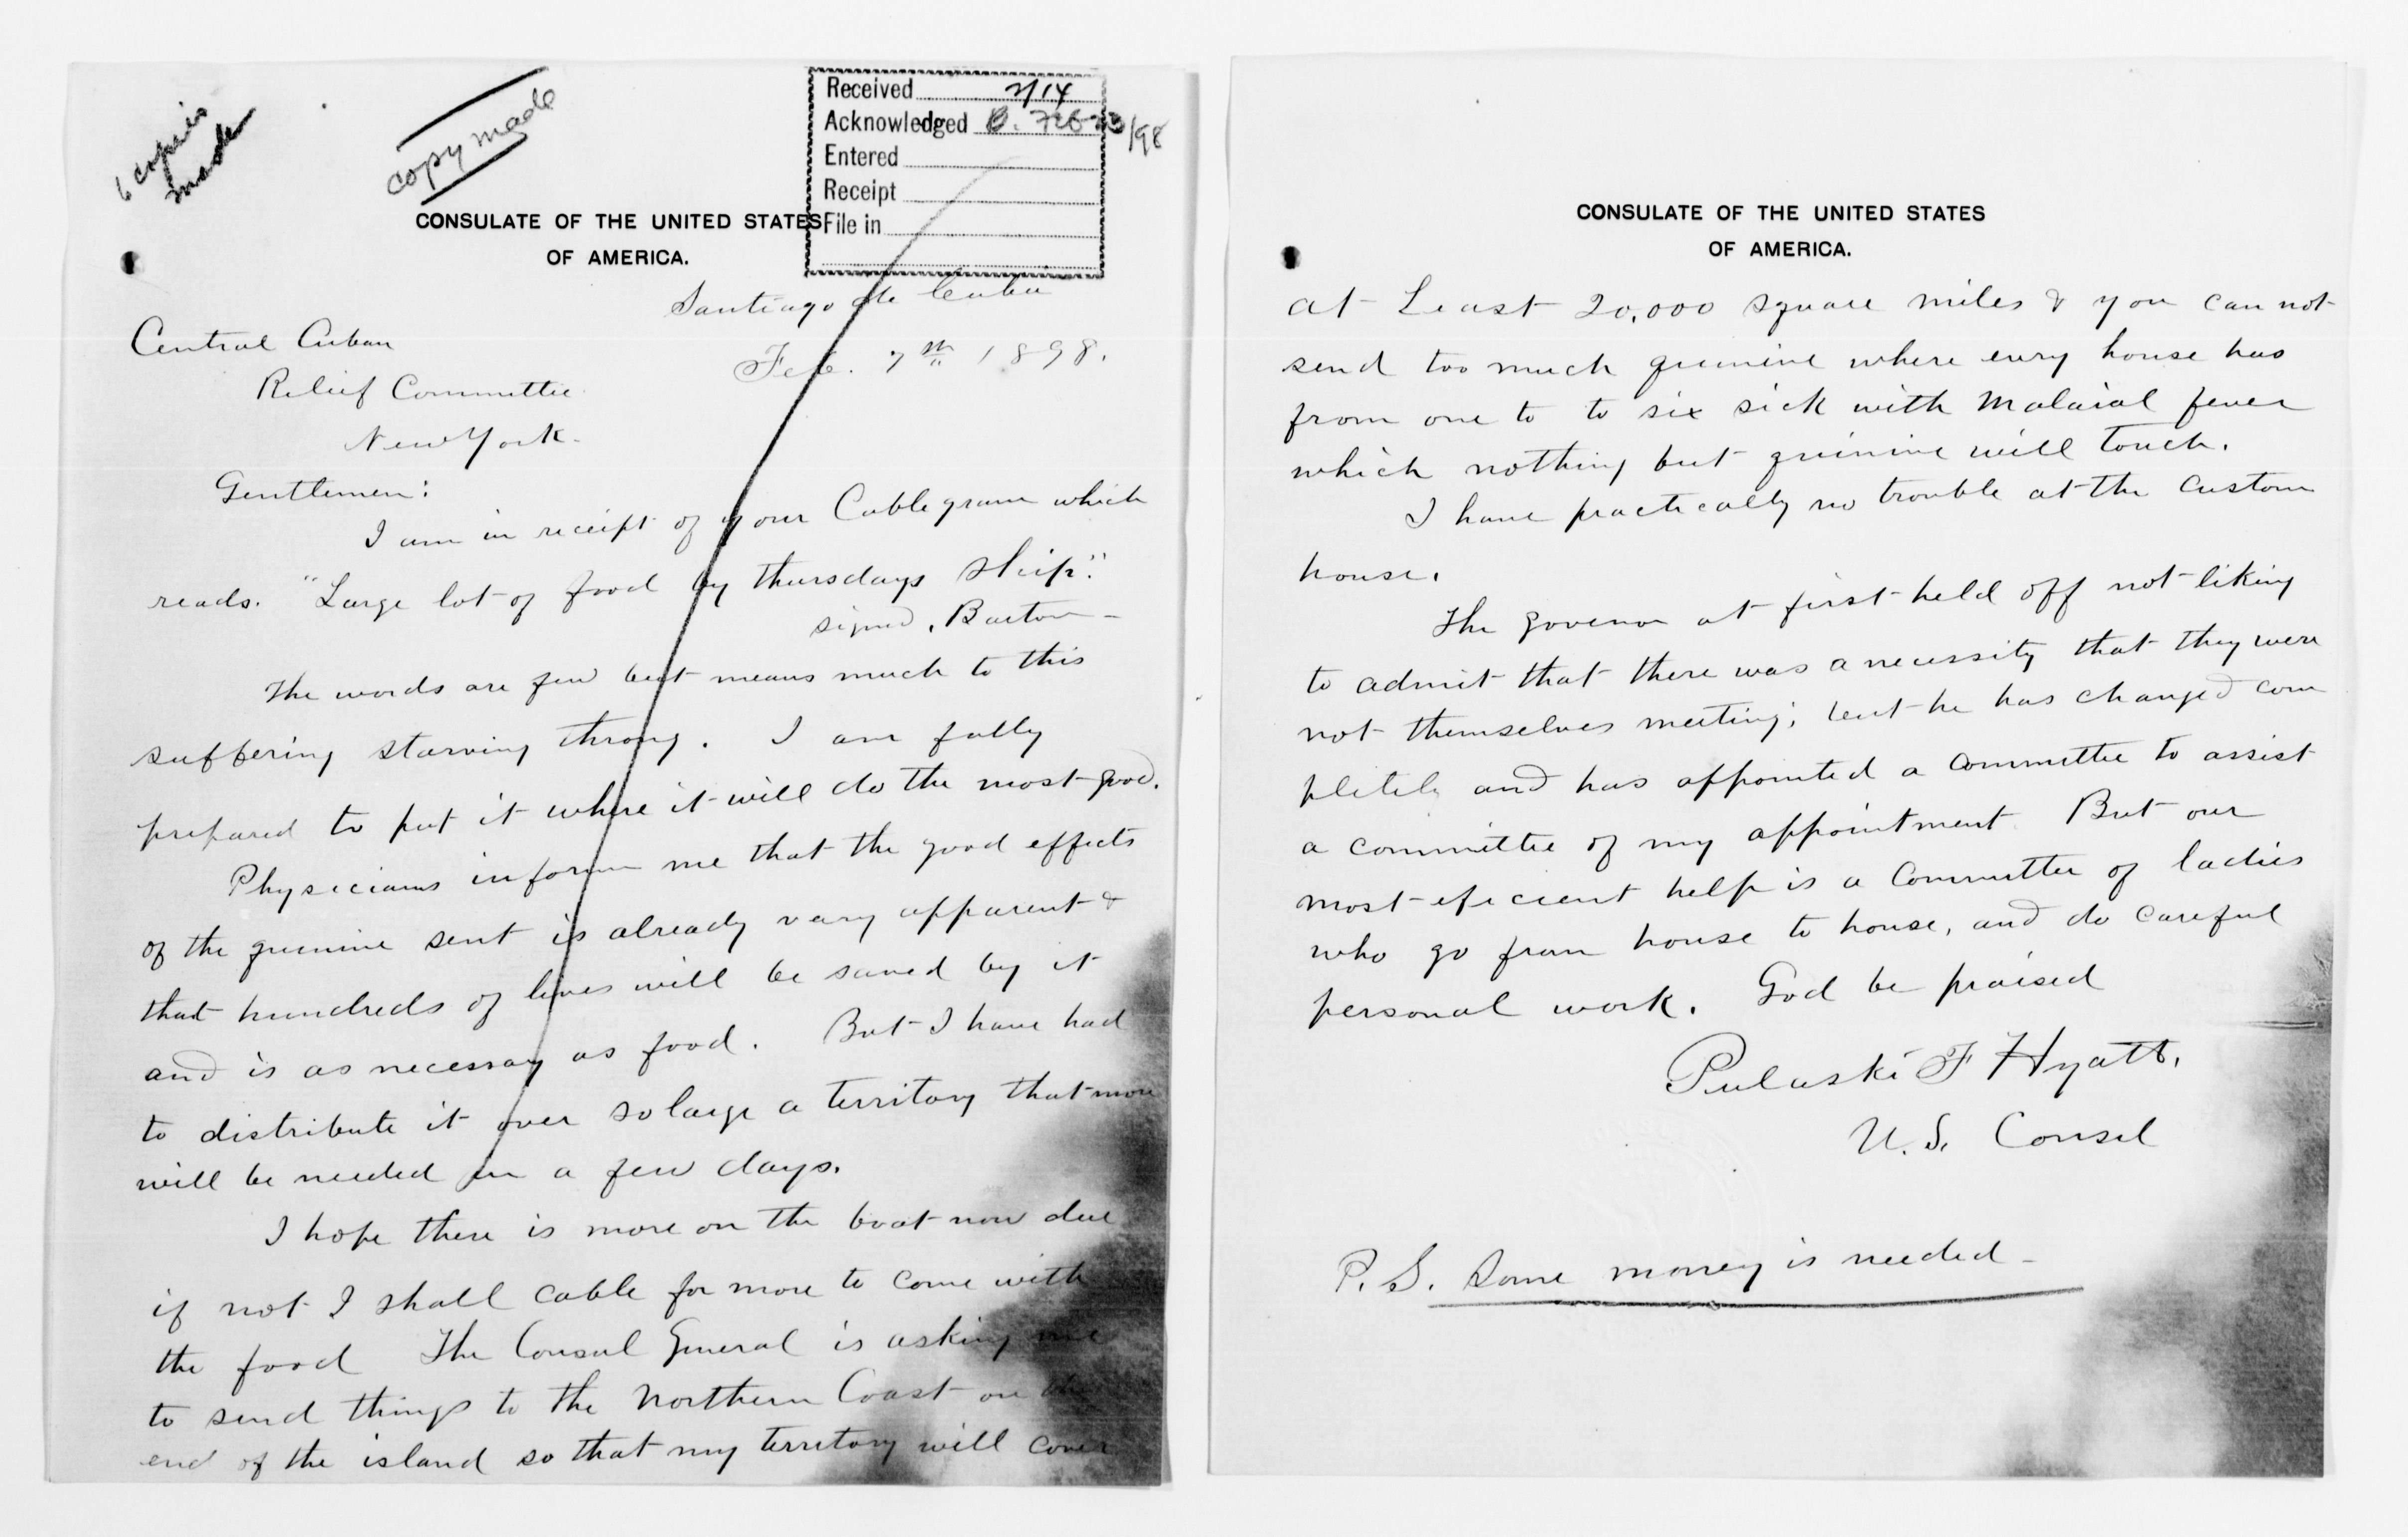 6 copies
made
copy made
Received 2/14
Acknowledged B. Feb 23/98
Entered
Receipt
File in
CONSULATE OF THE UNITED STATES
OF AMERICA.
Santiago de Cuba
Feb. 7th 1898.
Central Cuban
Relief Committee
New York.
Gentlemen:
I am in receipt of your Cablegram which
reads. "Large lot of food by thursdays ship".
signed, Barton -
The words are few but means much to this
suffering starving throng. I am fully
prepared to put it where it will do the most good.
Physicians inform me that the good effects
of the quinine sent is already vary apparent &
that hundreds of lives will be saved by it
and is as necessary as food. But I have had
to distribute it over so large a territory that more
will be needed in a few days.
I hope there is more on the boat now due
if not I shall cable for more to come with
the food The Consul General is asking me
to send things to the Northern Coast on
end of the island so that my territory will cover
CONSULATE OF THE UNITED STATES
OF AMERICA.
at Least 20,000 square miles & you can not
send too much quinine where every house has
from one to to six sick with Malaial fever
which nothing but quinine will touch.
I have practically no trouble at the Custom
house.
The govenor at first held off not liking
to admit that there was a necessity that they were
not themselves meeting; but he has changed com
pletely and has appointed a committee to assist
a committee of my appointment But our
most eficient help is a Committee of ladies
who go from house to house, and do careful
personal work. God be praised
Pulaski F Hyatt,
U. S. Consul
P. S. Some money is needed -